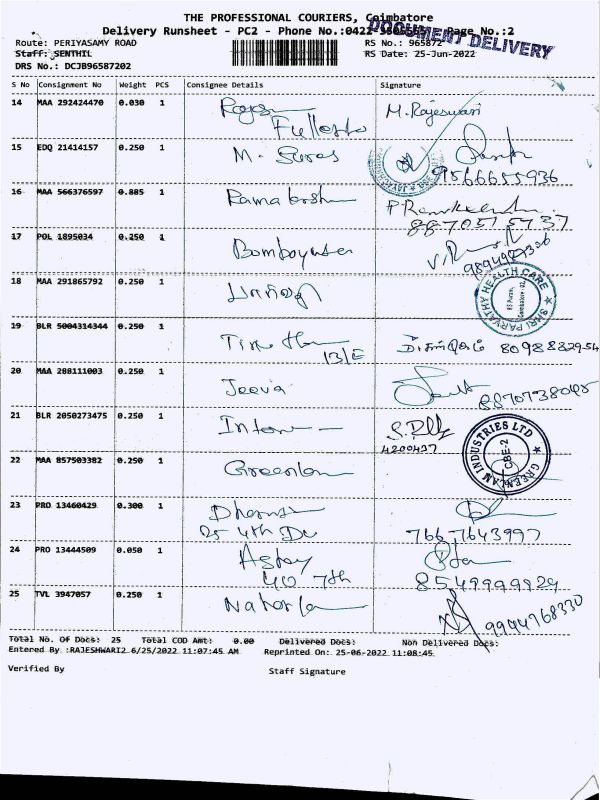 THE PROFESSIONAL COURIERS, Coimbatore
Delivery Runsheet - PC2 - Phone No.:0422 Page No.:2
DOCUMENT DELIVERY
Route: PERIYASAMY ROAD RS No.: 965872
Staff: SENTHIL RS Date: 25-Jun-2022
DRS No.: DCJB96587202
S No Consignment No Weight PCS Consignee Details Signature
14 MAA 292424470 0.030 1 M. Rajeswari
15 EDQ 21414157 0.250 1 M. Suras
9566655936
16 MAA 566376597 0.885 1
8870515737
17 POL 1895034 0.250 1
18 MAA 291865792 0.250 1
SHRI PARVATHY HEALTH CARE
RS Puram,
Coimbatore - 02.
19 BLR 5004314344 0.250 1
13/E 8098882954
20 MAA 288111003 0.250 1 Jeeva
8870738045
21 BLR 2050273475 0.250 1
4200427
GREENLAM INDUSTRIES LTD
CBE-2
22 MAA 857503382 0.250 1 Greenlam
23 PRO 13460429 0.300 1
25 4th 7667643997
24 PRO 13444509 0.050 1
40 7th 8549999929
25 TVL 3947057 0.250 1
9994768330
Total No. Of Docs: 25 Total COD Amt: 0.00 Delivered Docs: Non Delivered Docs:
Entered By :RAJESHWARI2 6/25/2022 11:07:45 AM Reprinted On: 25-06-2022 11:08:45
Verified By Staff Signature